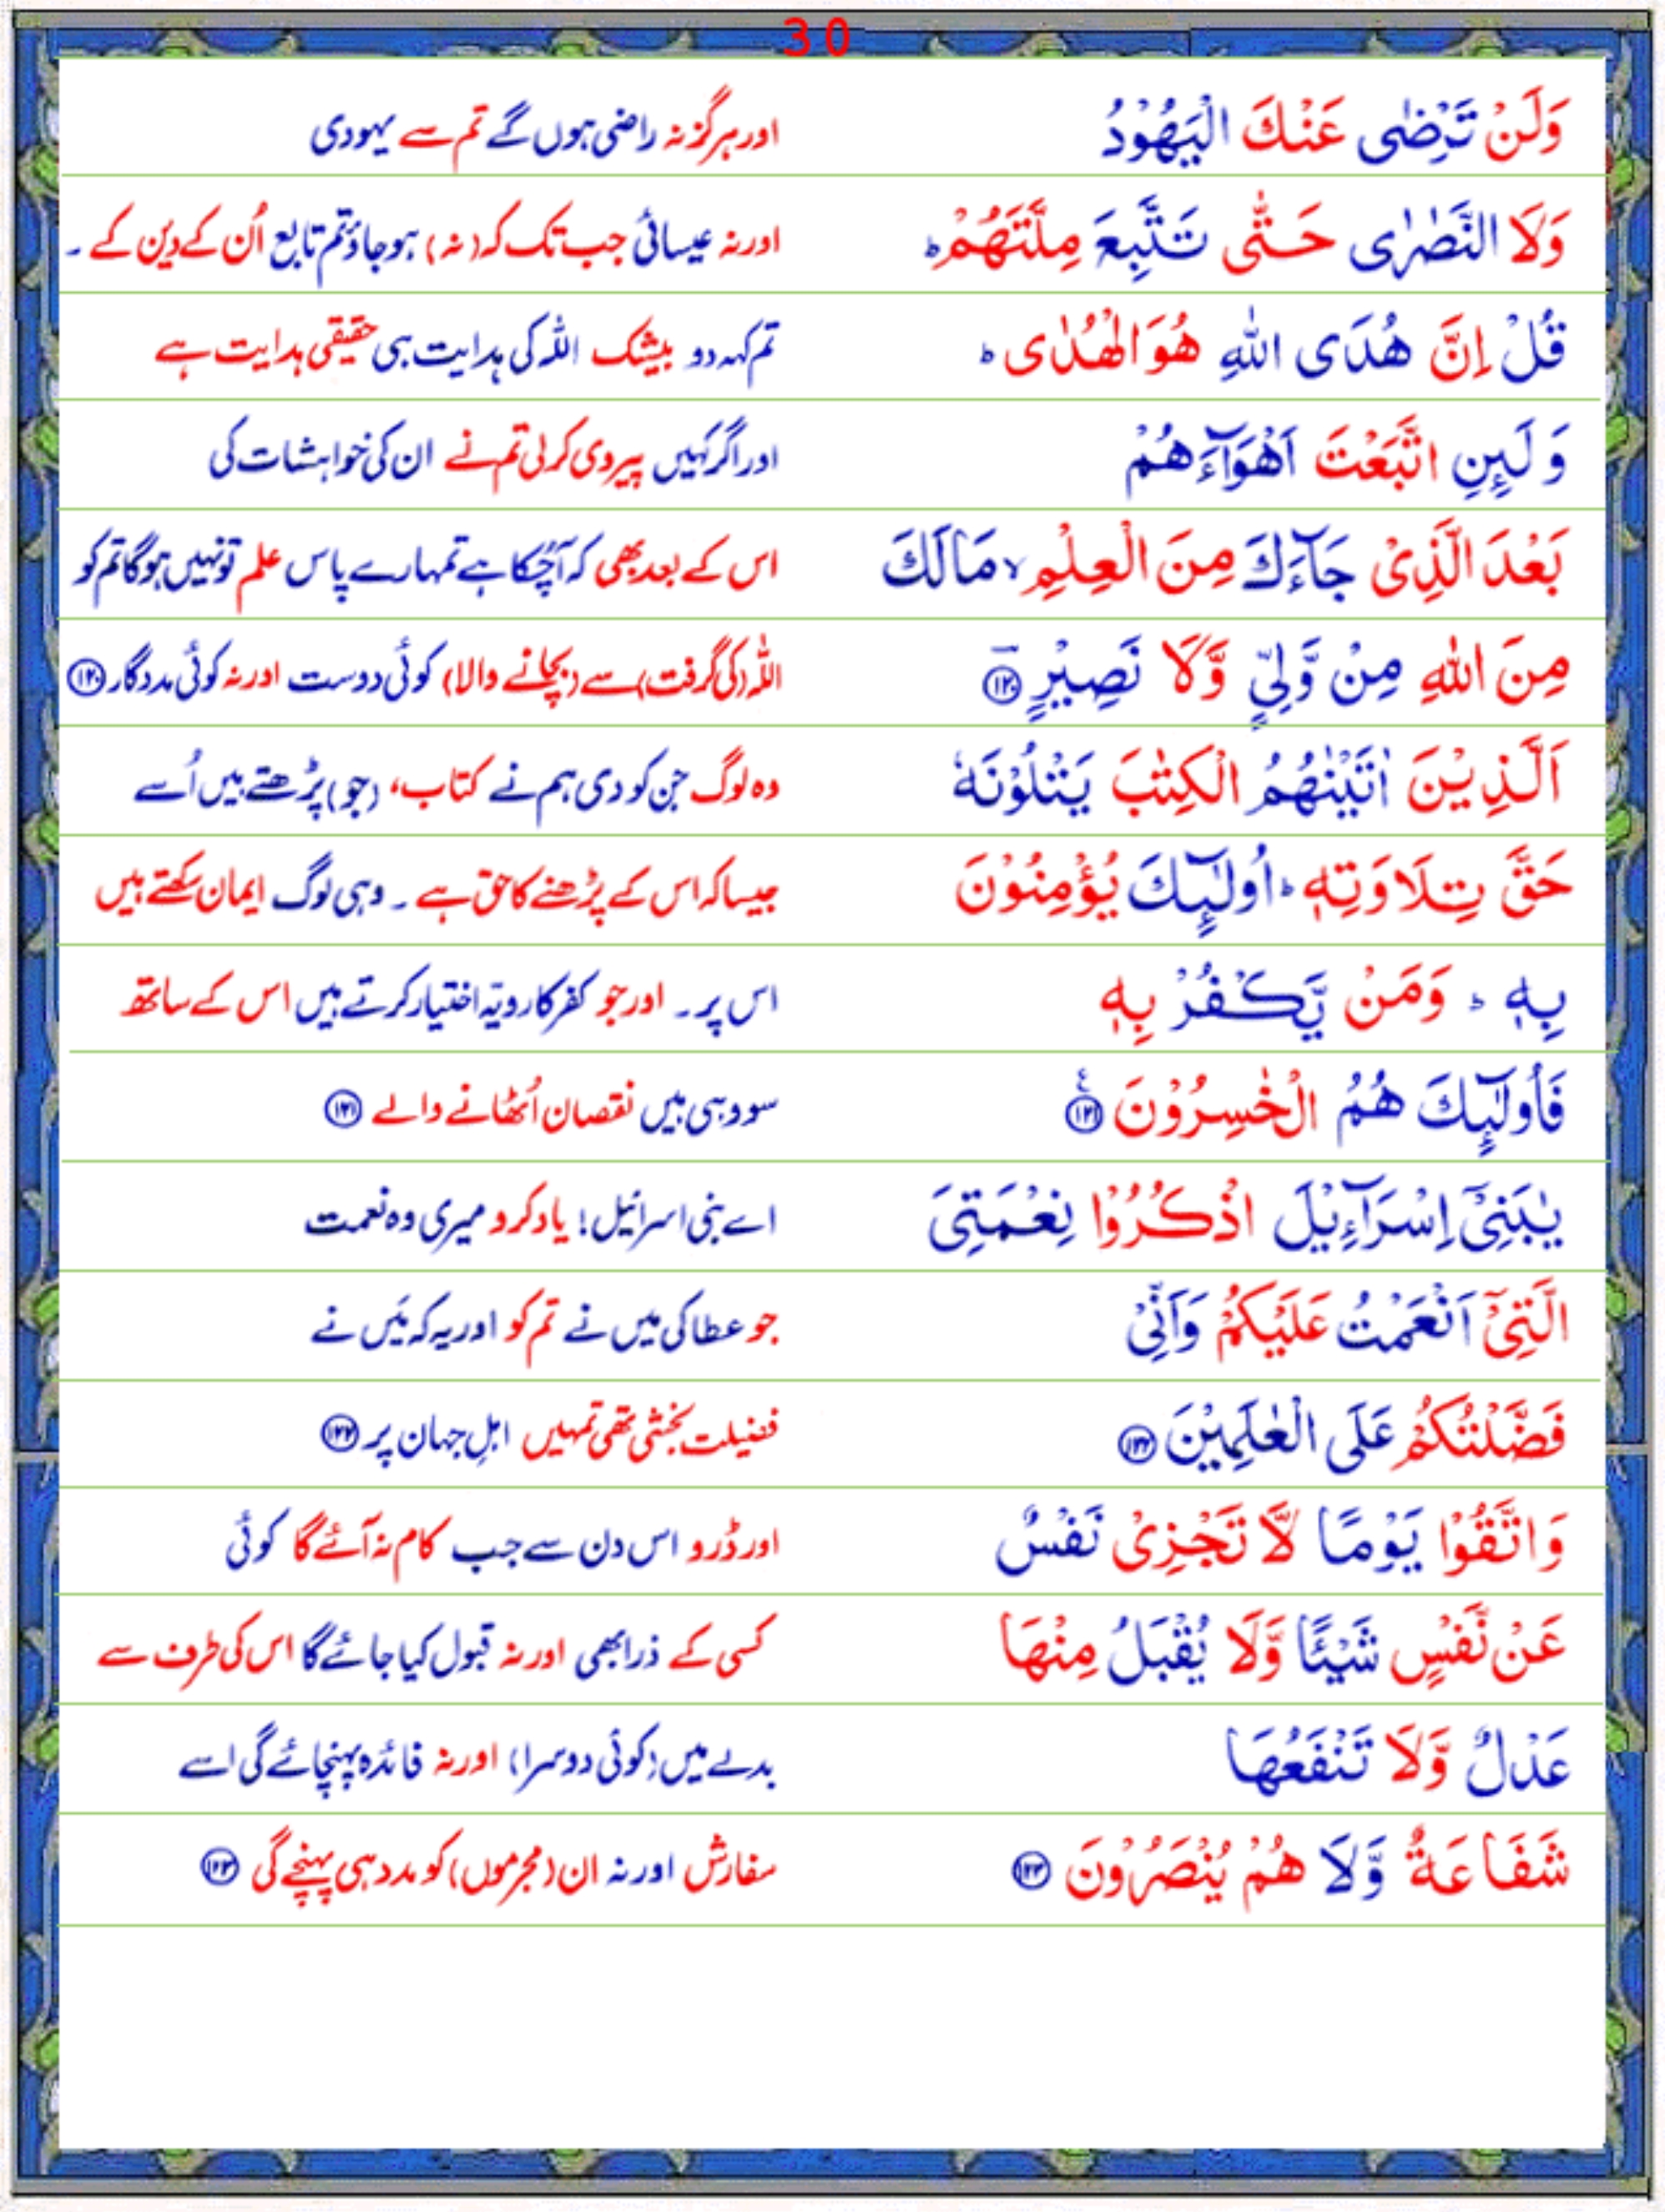 30
وَلَنْ تَرْضٰى عَنْكَ الْيَهُوْدُ
اور ہرگز نہ راضی ہوں گے تم سے یہودی
وَلَا النَّصٰرٰى حَتّٰى تَتَّبِعَ مِلَّتَهُمْ ؕ
اور نہ عیسائی جب تک کہ (نہ) ہو جاؤ تم تابع اُن کے دین کے ۔
قُلْ اِنَّ هُدَى اللّٰهِ هُوَ الْهُدٰى ؕ
تم کہہ دو بیشک اللہ کی ہدایت ہی حقیقی ہدایت ہے
وَلَىِٕنِ اتَّبَعْتَ اَهْوَآءَهُمْ
اور اگر کہیں پیروی کر لی تم نے ان کی خواہشات کی
بَعْدَ الَّذِىْ جَآءَكَ مِنَ الْعِلْمِ ۙ مَا لَكَ
اس کے بعد بھی کہ آ چُکا ہے تمہارے پاس علم تو نہیں ہوگا تم کو
مِنَ اللّٰهِ مِنْ وَّلِىٍّ وَّلَا نَصِيْرٍ ۱۲۰
اللہ (کی گرفت) سے (بچانے والا) کوئی دوست اور نہ کوئی مددگار ۱۲۰
اَلَّذِيْنَ اٰتَيْنٰهُمُ الْكِتٰبَ يَتْلُوْنَهٗ
وہ لوگ جن کو دی ہم نے کتاب، (جو) پڑھتے ہیں اُسے
حَقَّ تِلَاوَتِهٖ ؕ اُولٰٓىِٕكَ يُؤْمِنُوْنَ
جیسا کہ اس کے پڑھنے کا حق ہے ۔ وہی لوگ ایمان رکھتے ہیں
بِهٖ ؕ وَمَنْ يَّكْفُرْ بِهٖ
اس پر ۔ اور جو کفر کا رویّہ اختیار کرتے ہیں اس کے ساتھ
فَاُولٰٓىِٕكَ هُمُ الْخٰسِرُوْنَ ۱۲۱
سو وہی ہیں نقصان اُٹھانے والے ۱۲۱
يٰبَنِىْٓ اِسْرَآءِيْلَ اذْكُرُوْا نِعْمَتِىَ
اے بنی اسرائیل! یاد کرو میری وہ نعمت
الَّتِىْٓ اَنْعَمْتُ عَلَيْكُمْ وَاَنِّىْ
جو عطا کی میں نے تم کو اور یہ کہ مَیں نے
فَضَّلْتُكُمْ عَلَى الْعٰلَمِيْنَ ۱۲۲
فضیلت بخشی تھی تمہیں اہلِ جہان پر ۱۲۲
وَاتَّقُوْا يَوْمًا لَّا تَجْزِىْ نَفْسٌ
اور ڈرو اس دن سے جب کام نہ آئے گا کوئی
عَنْ نَّفْسٍ شَيْئًا وَّلَا يُقْبَلُ مِنْهَا
کسی کے ذرا بھی اور نہ قبول کیا جائے گا اس کی طرف سے
عَدْلٌ وَّلَا تَنْفَعُهَا
بدلے میں (کوئی دوسرا) اور نہ فائدہ پہنچائے گی اسے
شَفَاعَةٌ وَّلَا هُمْ يُنْصَرُوْنَ ۱۲۳
سفارش اور نہ ان (مجرموں) کو مدد ہی پہنچے گی ۱۲۳